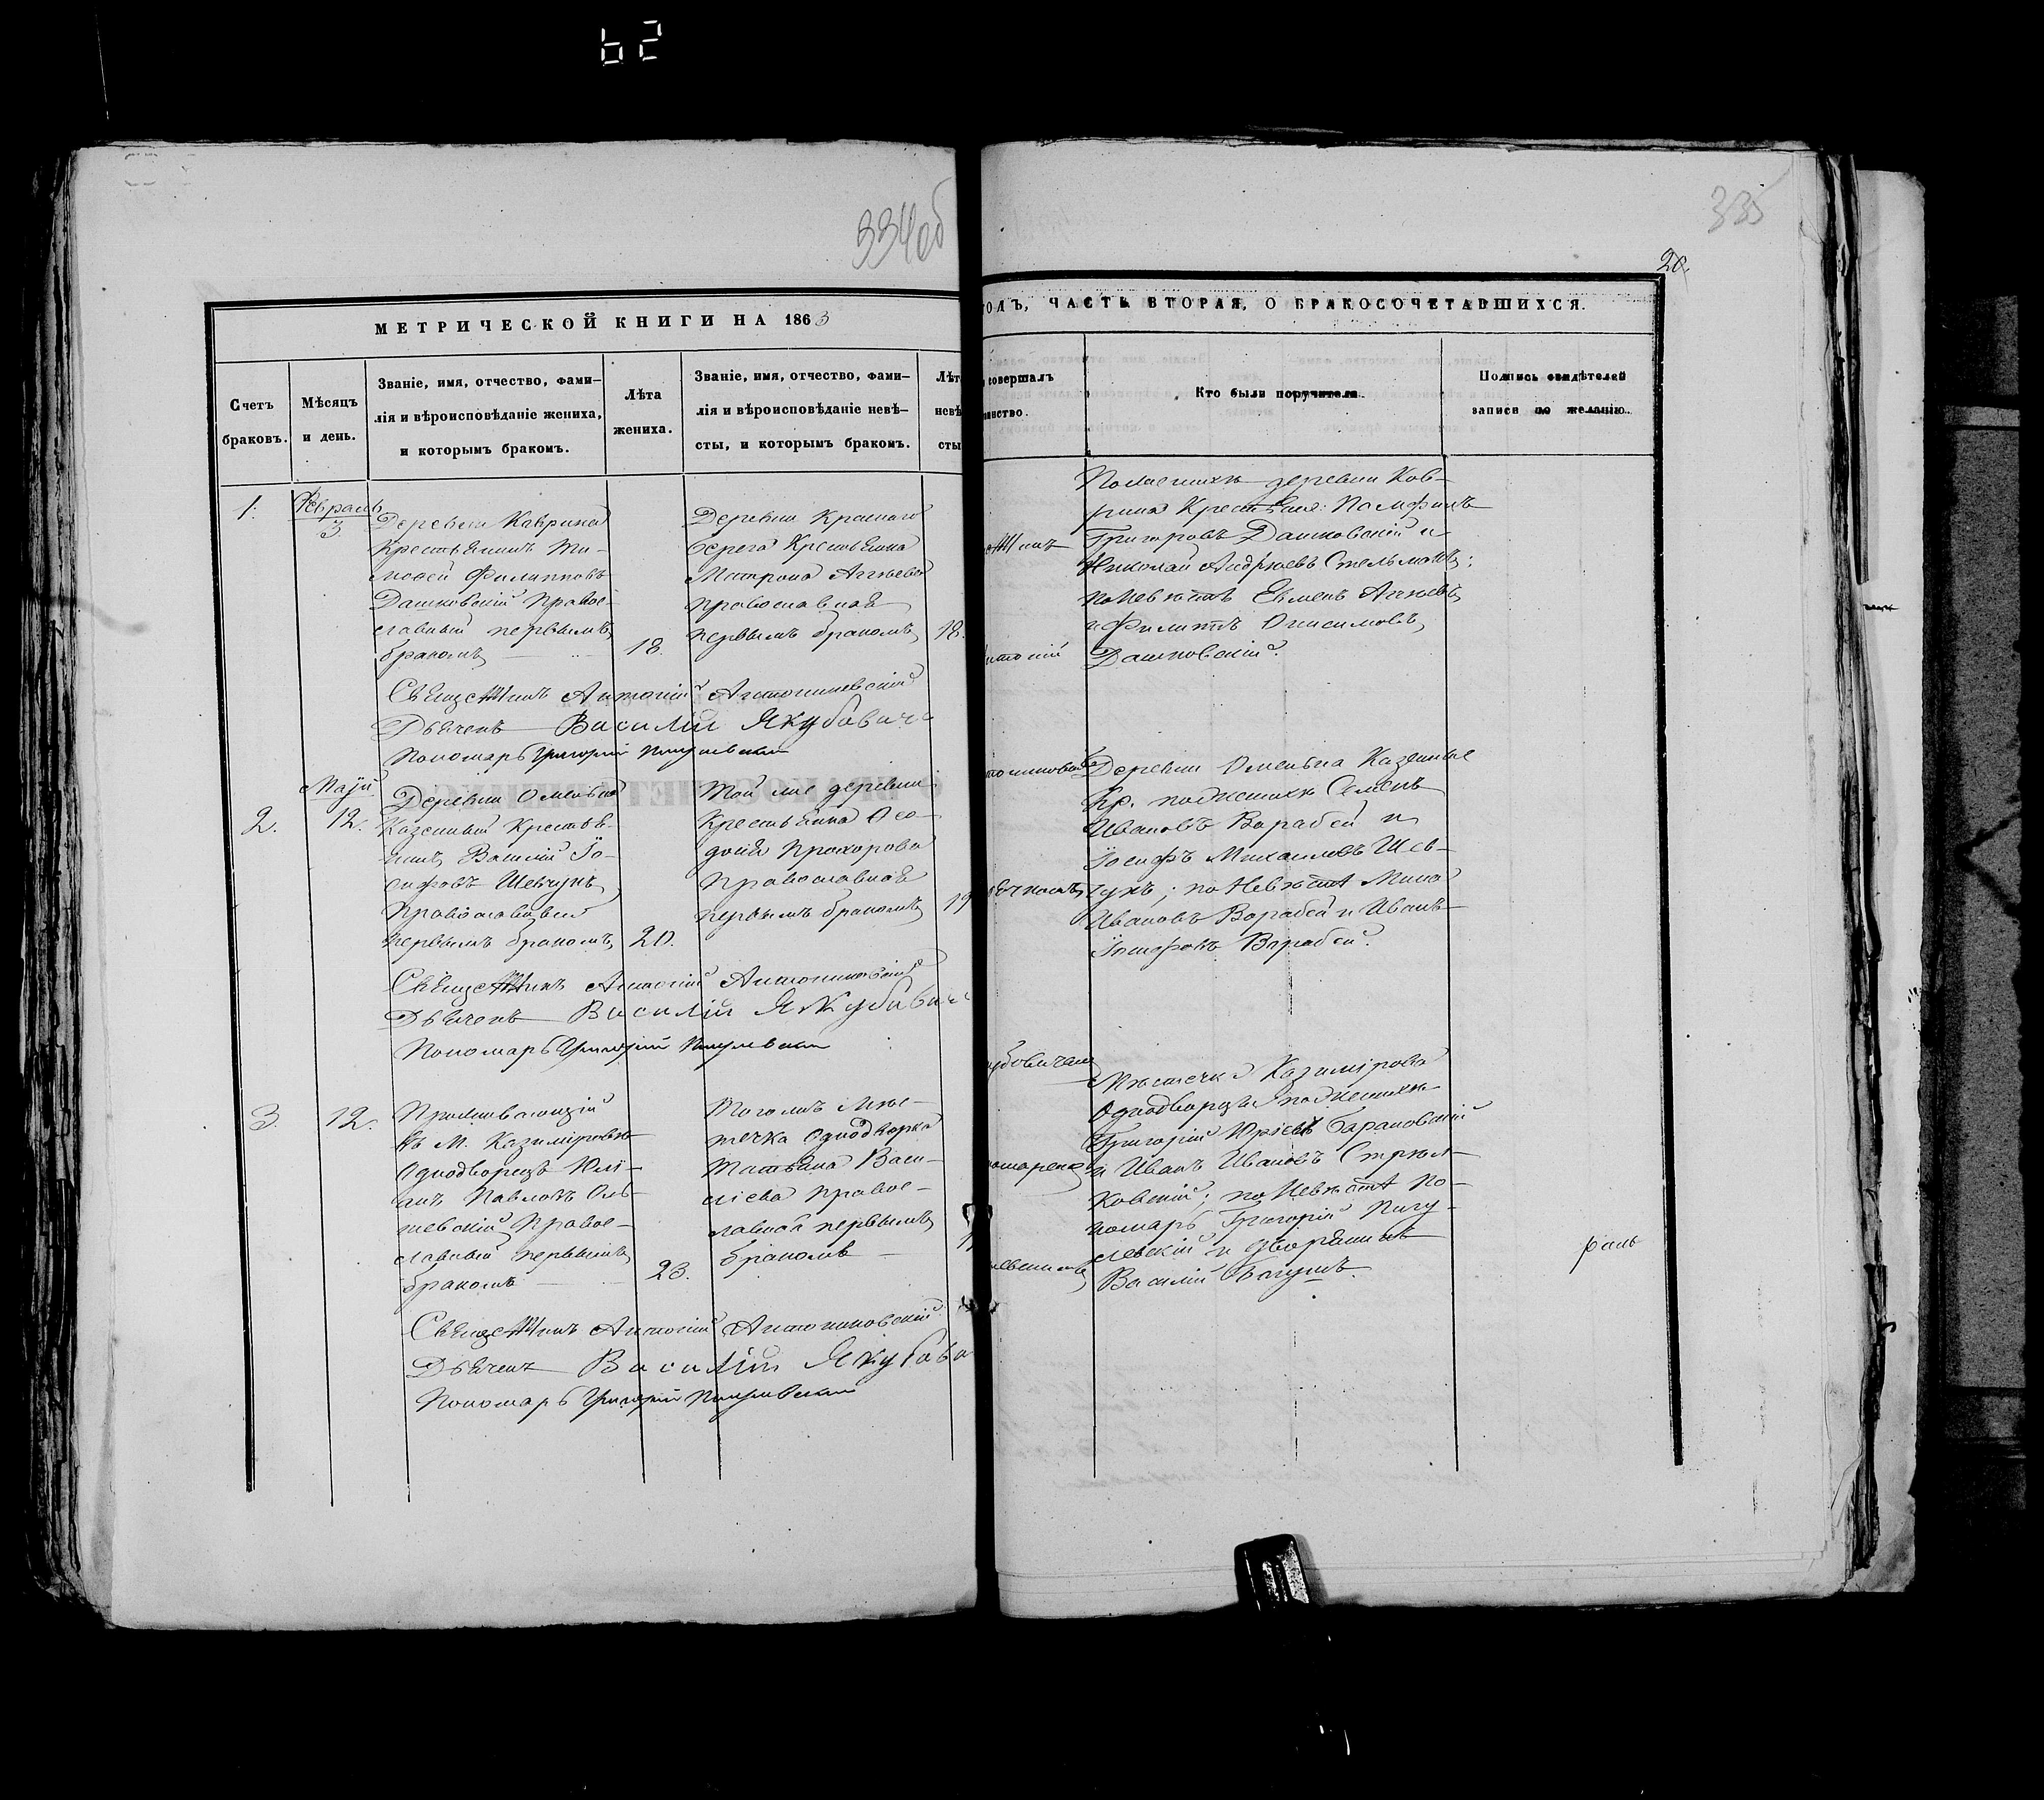 62
334об
335
20.
МЕТРИЧЕСКОЙ КНИГИ НА 1863
ГОДЪ, ЧАСТЬ ВТОРАЯ, О БРАКОСОЧЕТАВШИХСЯ.
Счетъ
браковъ.
Мѣсяцъ
и день.
Званіе, имя, отчество, фами–
лія и вѣроисповѣданіе жениха,
и которымъ бракомъ.
Лѣта
жениха.
Званіе, имя, отчество, фами–
лія и вѣроисповѣданіе невѣ–
сты, и которымъ бракомъ.
Лѣт
невѣ
сты
совершалъ
инство.
Кто были поручители.
Подпись свидѣтелей
записи по желанію.
1.
Февраль
3
Деревни Каврина
Крестьянинъ Ти–
моѳей Филипповъ
Дашковскій Правос–
лавный первымъ
бракомъ
18.
Деревни Краснаго
берега Крестьянка
Матрона Агѣева
православная
первымъ бракомъ
18.
Деревни Ков–
рина Крестьяне: Памфилъ
Григоровъ Дашковскій и
Николай Андреевъ Стельмахъ;
по невѣстѣ Евменъ Агѣевъ
и Филиппъ Онисимовъ
Дашковскій.
Священникъ Антоній Антониновскій
Дьячекъ Василій Якубовичъ
Пономарь Григорій
2.
Маій
12.
Деревни Оменьна
Казенный Крестья–
нинъ Василій Іо–
сифовъ Шевчукъ
Православный
первымъ бракомъ
20.
Той же деревни
Крестьянка Ѳео–
досія Прохорова
Православная
первымъ бракомъ
19
Деревни Оменьна Казенные
Кр. по женихѣ Семенъ
Ивановъ Варабей и
Іосифъ Михаиловъ Шев–
чукъ; по Невѣстѣ Мина
Ивановъ Варабей и Иванъ
Іосифовъ Варабей.
Священникъ Антоній Антониновскій
Дьячекъ Василій Якубовичъ
Пономарь Григорій
3.
12.
Проживающій
въ М. Казиміровѣ
Однодворецъ Юлі–
анъ Павловъ Оль–
шевскій Правос–
лавный первымъ
бракомъ
23.
Тогожъ Мѣс–
течка Однодворка
Татьяна Васи–
ліева Правос–
лавная первымъ
бракомъ
Мѣстечка Казимірова
Однодворцы по женихѣ
Григорій Юріевъ Барановскій
и Иванъ Ивановъ Стрѣл–
ковскій; по Невѣстѣ По–
номарь Григорій Пигу–
левскій и дворянинъ
Василій
Священникъ Антоній Антониновскій
Дьячекъ Василій Якубови
Пономарь Григорій